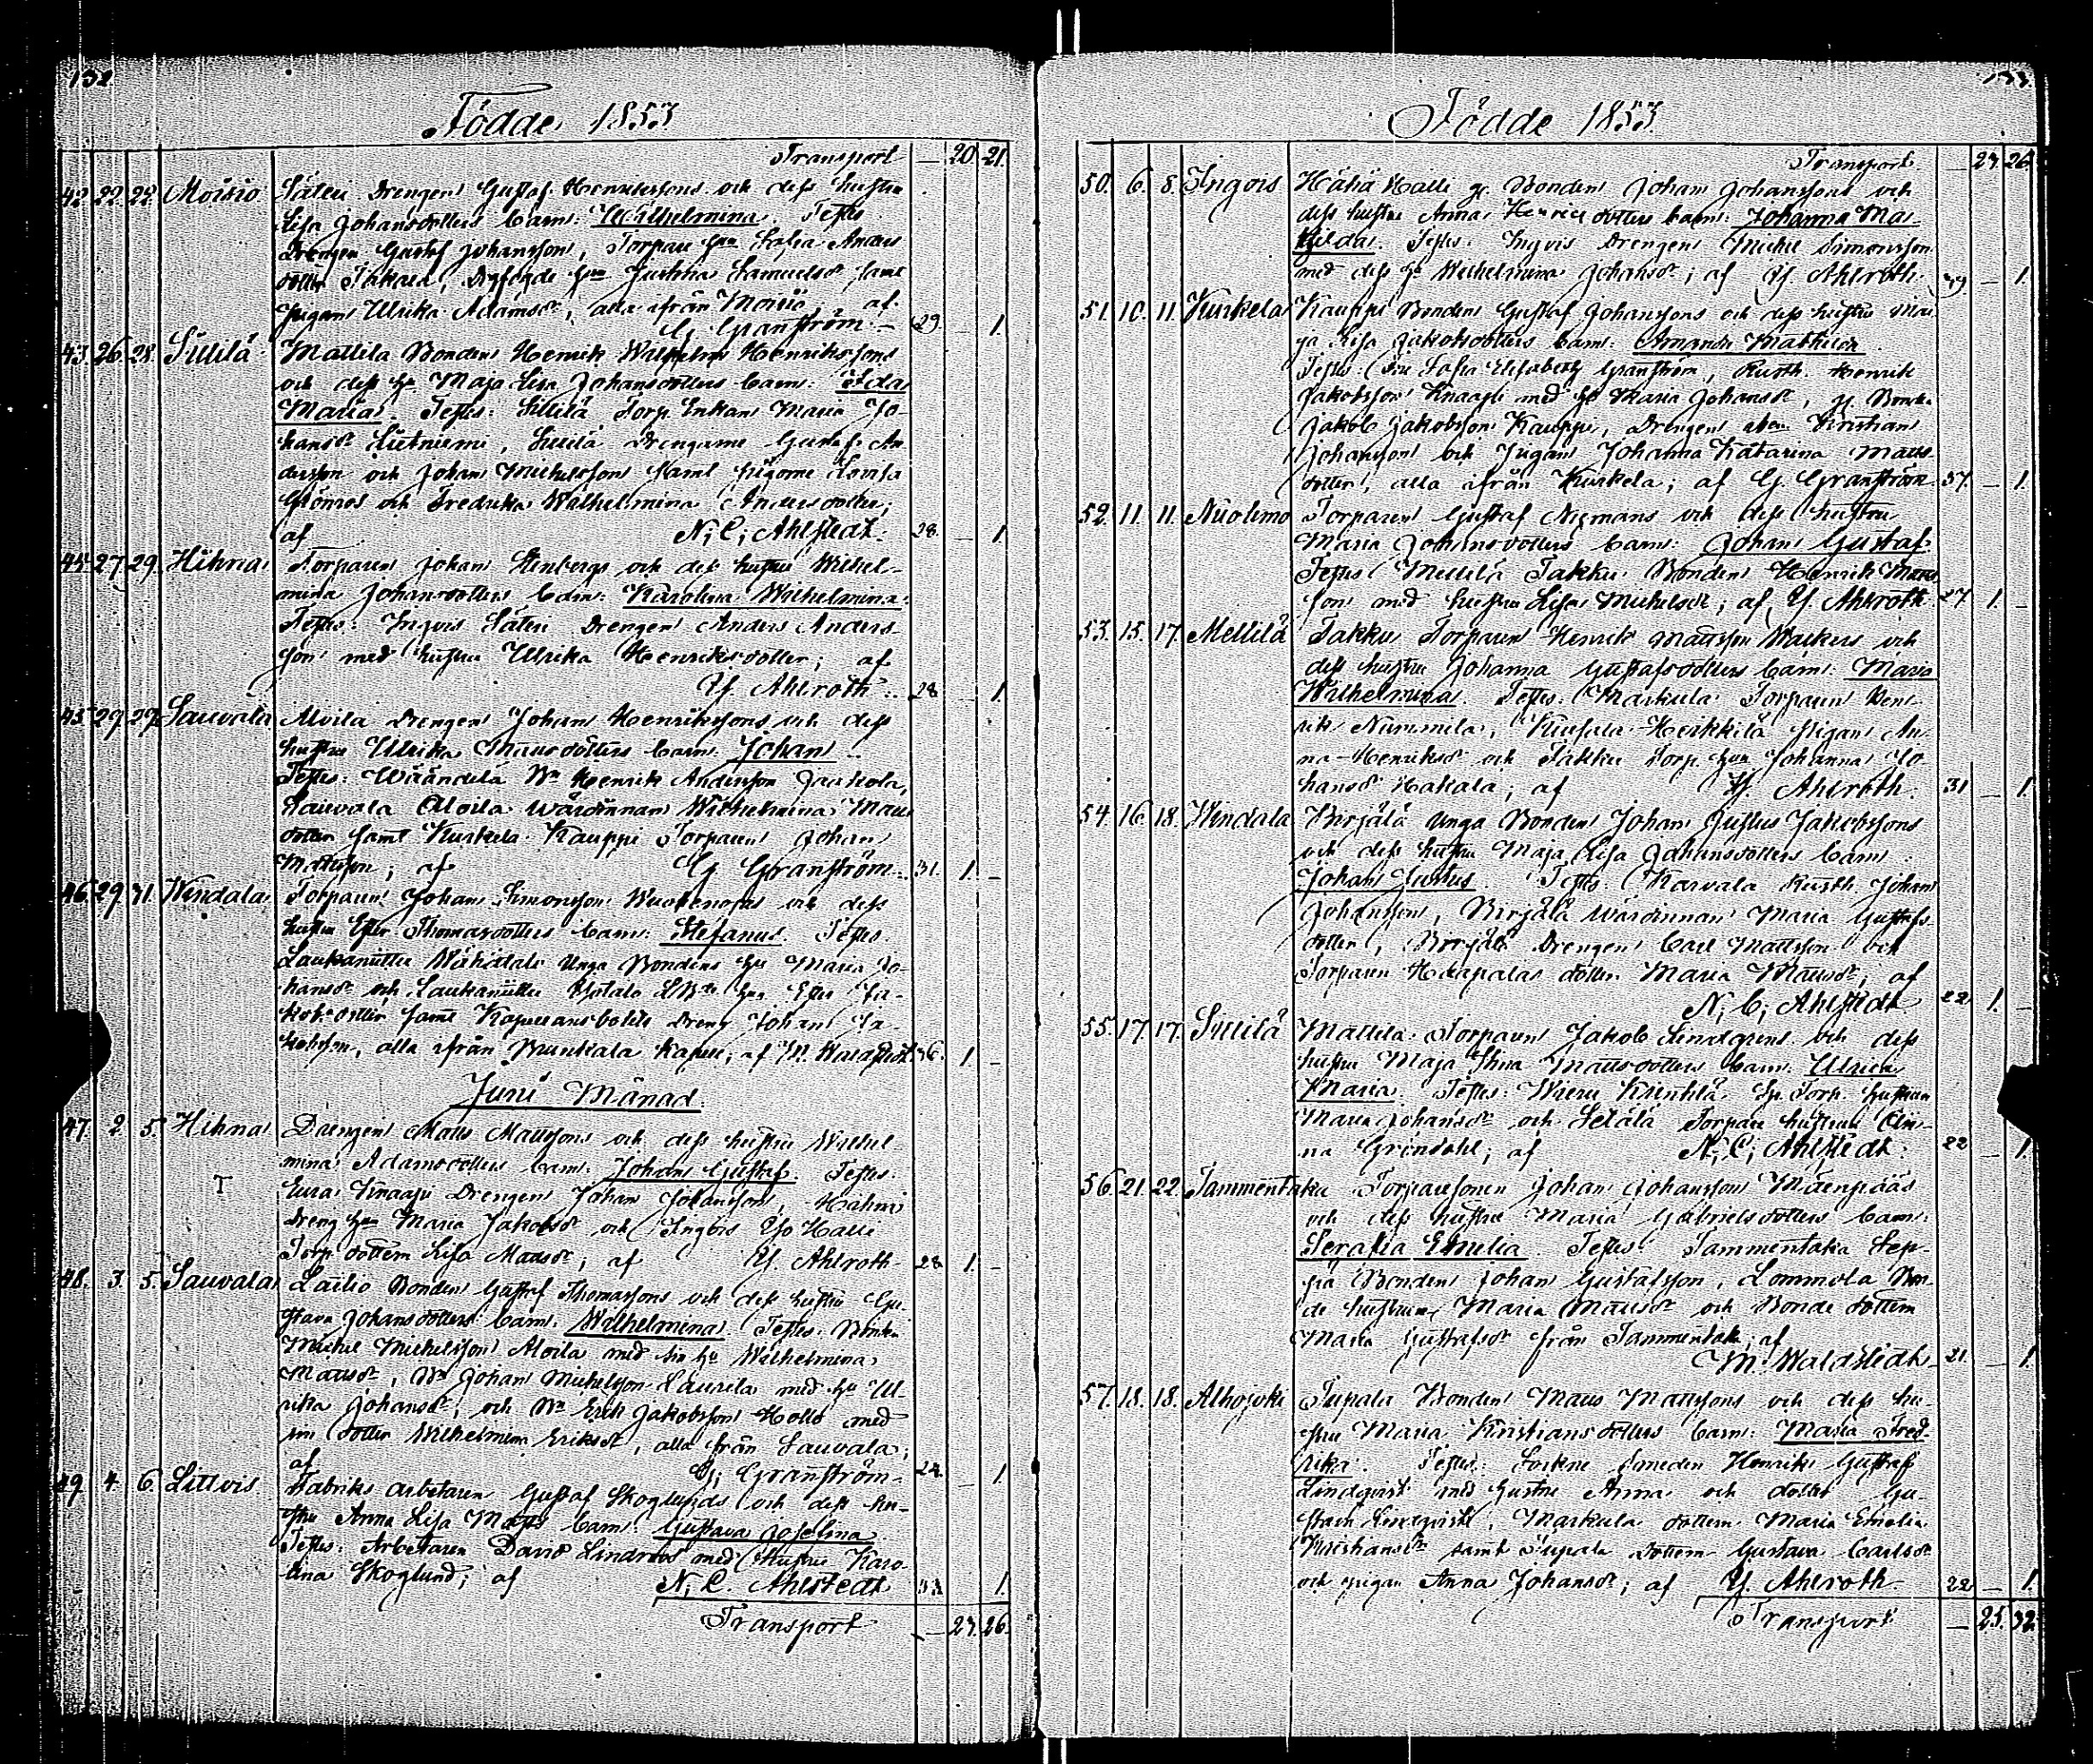 132
Födde 1853
Transport — 20 21
42. 22. 22. Moisio Säteri Drengen Gustaf Henrikssons och dess hustru
Lisa Johansdotters barn: Wilhelmina. Testes
Drengen Gustaf Johansson, Torpare hun Sofia Anders
dotter Takala, Justina Samuelsdr samt
pigan Ulrika Adamsdr, alla ifrån Moisio; af
G. Granström. 29. — 1.
43. 26. 28. Sillilä Mattila Bonden Henrik Wilhelm Henrikssons
och dess hu Maja Lisa Johansdotters barn: Ida
Maria. Testes: Sillilä Torp. Enkan Maria Jo-
hansdr Lietniemi, Sillilä drengarne Gustaf An
dersson och Johan Michelsson samt pigorne Lovisa
Grönros och Fredrika Wilhelmina Andersdotter;
af N. C. Ahlstedt. 28. — 1
44. 27. 29. Hihna Torparen Johan Stenbergs och dess hustru Wilhel-
mina Johansdotters barn: Karolina Wilhelmina.
Testes: Ingois Säteri Drengen Anders Anders-
son med hustru Ulrika Henriksdotter; af
Y. Ahlroth. 28. 1.
45. 29. 29. Sauvala Aloila Drengen Johan Henrikssons och dess
hustru Ulrika Mattsdotters barn: Johan.
Testes: Wäändelä Bn Henrik Andersson Jaakola,
Sauvala Aloila Wärdinnan Wilhelmina Matts
dotter samt Kurkela Kauppi Torparen Johan
Mattsson; af G. Granström. 31. 1. —
46. 29. 31. Wendala Torparen Johan Simonsson och dess
hustru Ester Thomasdotters barn: Stefanus. Testes
Unga Bondens hu Maria Jo-
hansdr och hus Ester Ja-
kobsdotter samt Kapellansbolets Dreng Johan Ja-
kobsson, alla ifrån Kapell; af M. Waldstedt. 36. 1. —
Juni Månad.
47. 2. 5. Hihna Drengen Matts Mattssons och dess hustru Wilhel-
mina Adamsdotters barn: Johan Gustaf. Testes:
Eura Knaapi Drengen Johan Johansson, Hahni
Dreng hun Maria Jakobsdr och Ingois Yo Halli
Torp. dottern Lisa Mattsdr; af Y. Ahlroth. 28. 1. —
48. 3. 5. Sauvala Lailio Bonden Gustaf Thomassons och dess hustru Gu
stava Johansdotters barn: Wilhelmina. Testes: Bonden
Michel Michelsson Aloila med sin hu Wilhelmina
Mattsdr, Bn Johan Michelsson Laurila med hu Ul-
rika Johansdr, och Bn Erik Jakobsson Hollo med
sin dotter Wilhelmina Eriksdr, alla från Sauvala;
af G. Granström. 24. 1
49. 4. 6. Littois Fabriks arbetaren Gustaf Skoglunds och dess hu-
stru Anna Lisa Matts barn: Gustava Josefina.
Testes: Arbetaren David Lindroos med hustru Karo-
lina Skoglund; af N. C. Ahlstedt 1.
Transport — 23. 26.
133.
Födde 1853.
Transport — 23 26
50. 6. 8. Ingois Hähä Halli Bonden Johan Johanssons och
dess hustru Anna Henricsdotters barn: Johanna Ma-
thilda. Testes: Ingois Drengen Michel Simonsson
med dess hu Wilhelmina Johansdr; af Y. Ahlroth. — 1.
51. 10. 11. Kurkela Kauppi Bonden Gustaf Johanssons och dess hustru Ma-
ja Lisa Jakobsdotters barn: Amanda Mathilda.
Testes: Fru Sofia Elisabeth Granström, Rusth. Henrik
Jakobsson Knaapi med hu Maria Johansdr, Bonden
Jakob Jakobsson Kauppi, Drengen Kristian
Johansson och Pigan Johanna Katarina Matts
dotter, alla ifrån Kurkela; af G. Granström. 37. — 1.
52. 11. 11. Nuolimo Torparen Gustaf Nymans och dess hustru
Maria Johansdotters barn: Johan Gustaf.
Testes Mellilä Takku Bonden Henrik Matts
son med hustru Lisa Michelsdr; af Y. Ahlroth. 27. 1. —
53. 15. 17. Mellilä Takku Torparen Henrik Mattsson och
dess hustru Johanna Gustafsdotters barn: Maria
Wilhelmina. Testes: Markula Torparen Hen-
rik Nummila, Heikkilä Pigan An-
na Henriksdr och Takku Torp. hun Johanna Jo
hansdr Hakala; af Y. Ahlroth. 31 — 1
54. 16. 18. Wendala Pirjälä Unga Bonden Johan Justus Jakobssons
och dess hustru Maja Lisa Johansdotters barn:
Johan Justus. Testes: Karvala Rusth. Johan
Johansson, Pirjälä Wärdinnan Maria Gustafs
dotter, Pirjälä Drengen Carl Mattsson och
Torparen Haapalas dotter Maria Mattsdr; af
N. C. Ahlstedt. 22 1. —
55. 17. 17. Sillilä Mattila Torparen Jakob Lindgrens och dess
hustru Maja Stina Mattsdotters barn: Ulrica
Maria. Testes: Torp. hustrun
Maria Johansdr och Setälä Torpare hustrun An-
na Gröndahl; af N. C. Ahlstedt. 22 — 1.
56. 21. 22. Tammentaka Torparesonen Johan Johanssons Mäenpääs
och dess hustru Maria Gabrielsdotters barn:
Serafia Emelia. Testes: Tammentaka Sep-
pä Bonden Johan Gustafsson, Lommola Bon-
de hustrun Maria Mattsdr och Bonde dottern
Maria Gustafsdr från Tammentaka; af
M. Waldstedt. 21. — 1.
57. 18. 18. Alhojoki Supala Bonden Matts Mattssons och dess hu-
stru Maria Kristiansdotters barn: Maria Fred-
rika. Testes: Sockne Smeden Henrik Gustaf
Lindqvist med hustru Anna och dotter Gu-
stava Lindqvist, Markula dottern Maria Emelia
Kristiansdr samt Supala dottern Gustava Carlsdr
och pigan Anna Johansdr; af Y. Ahlroth. 22 — 1.
Transport — 25. 32.